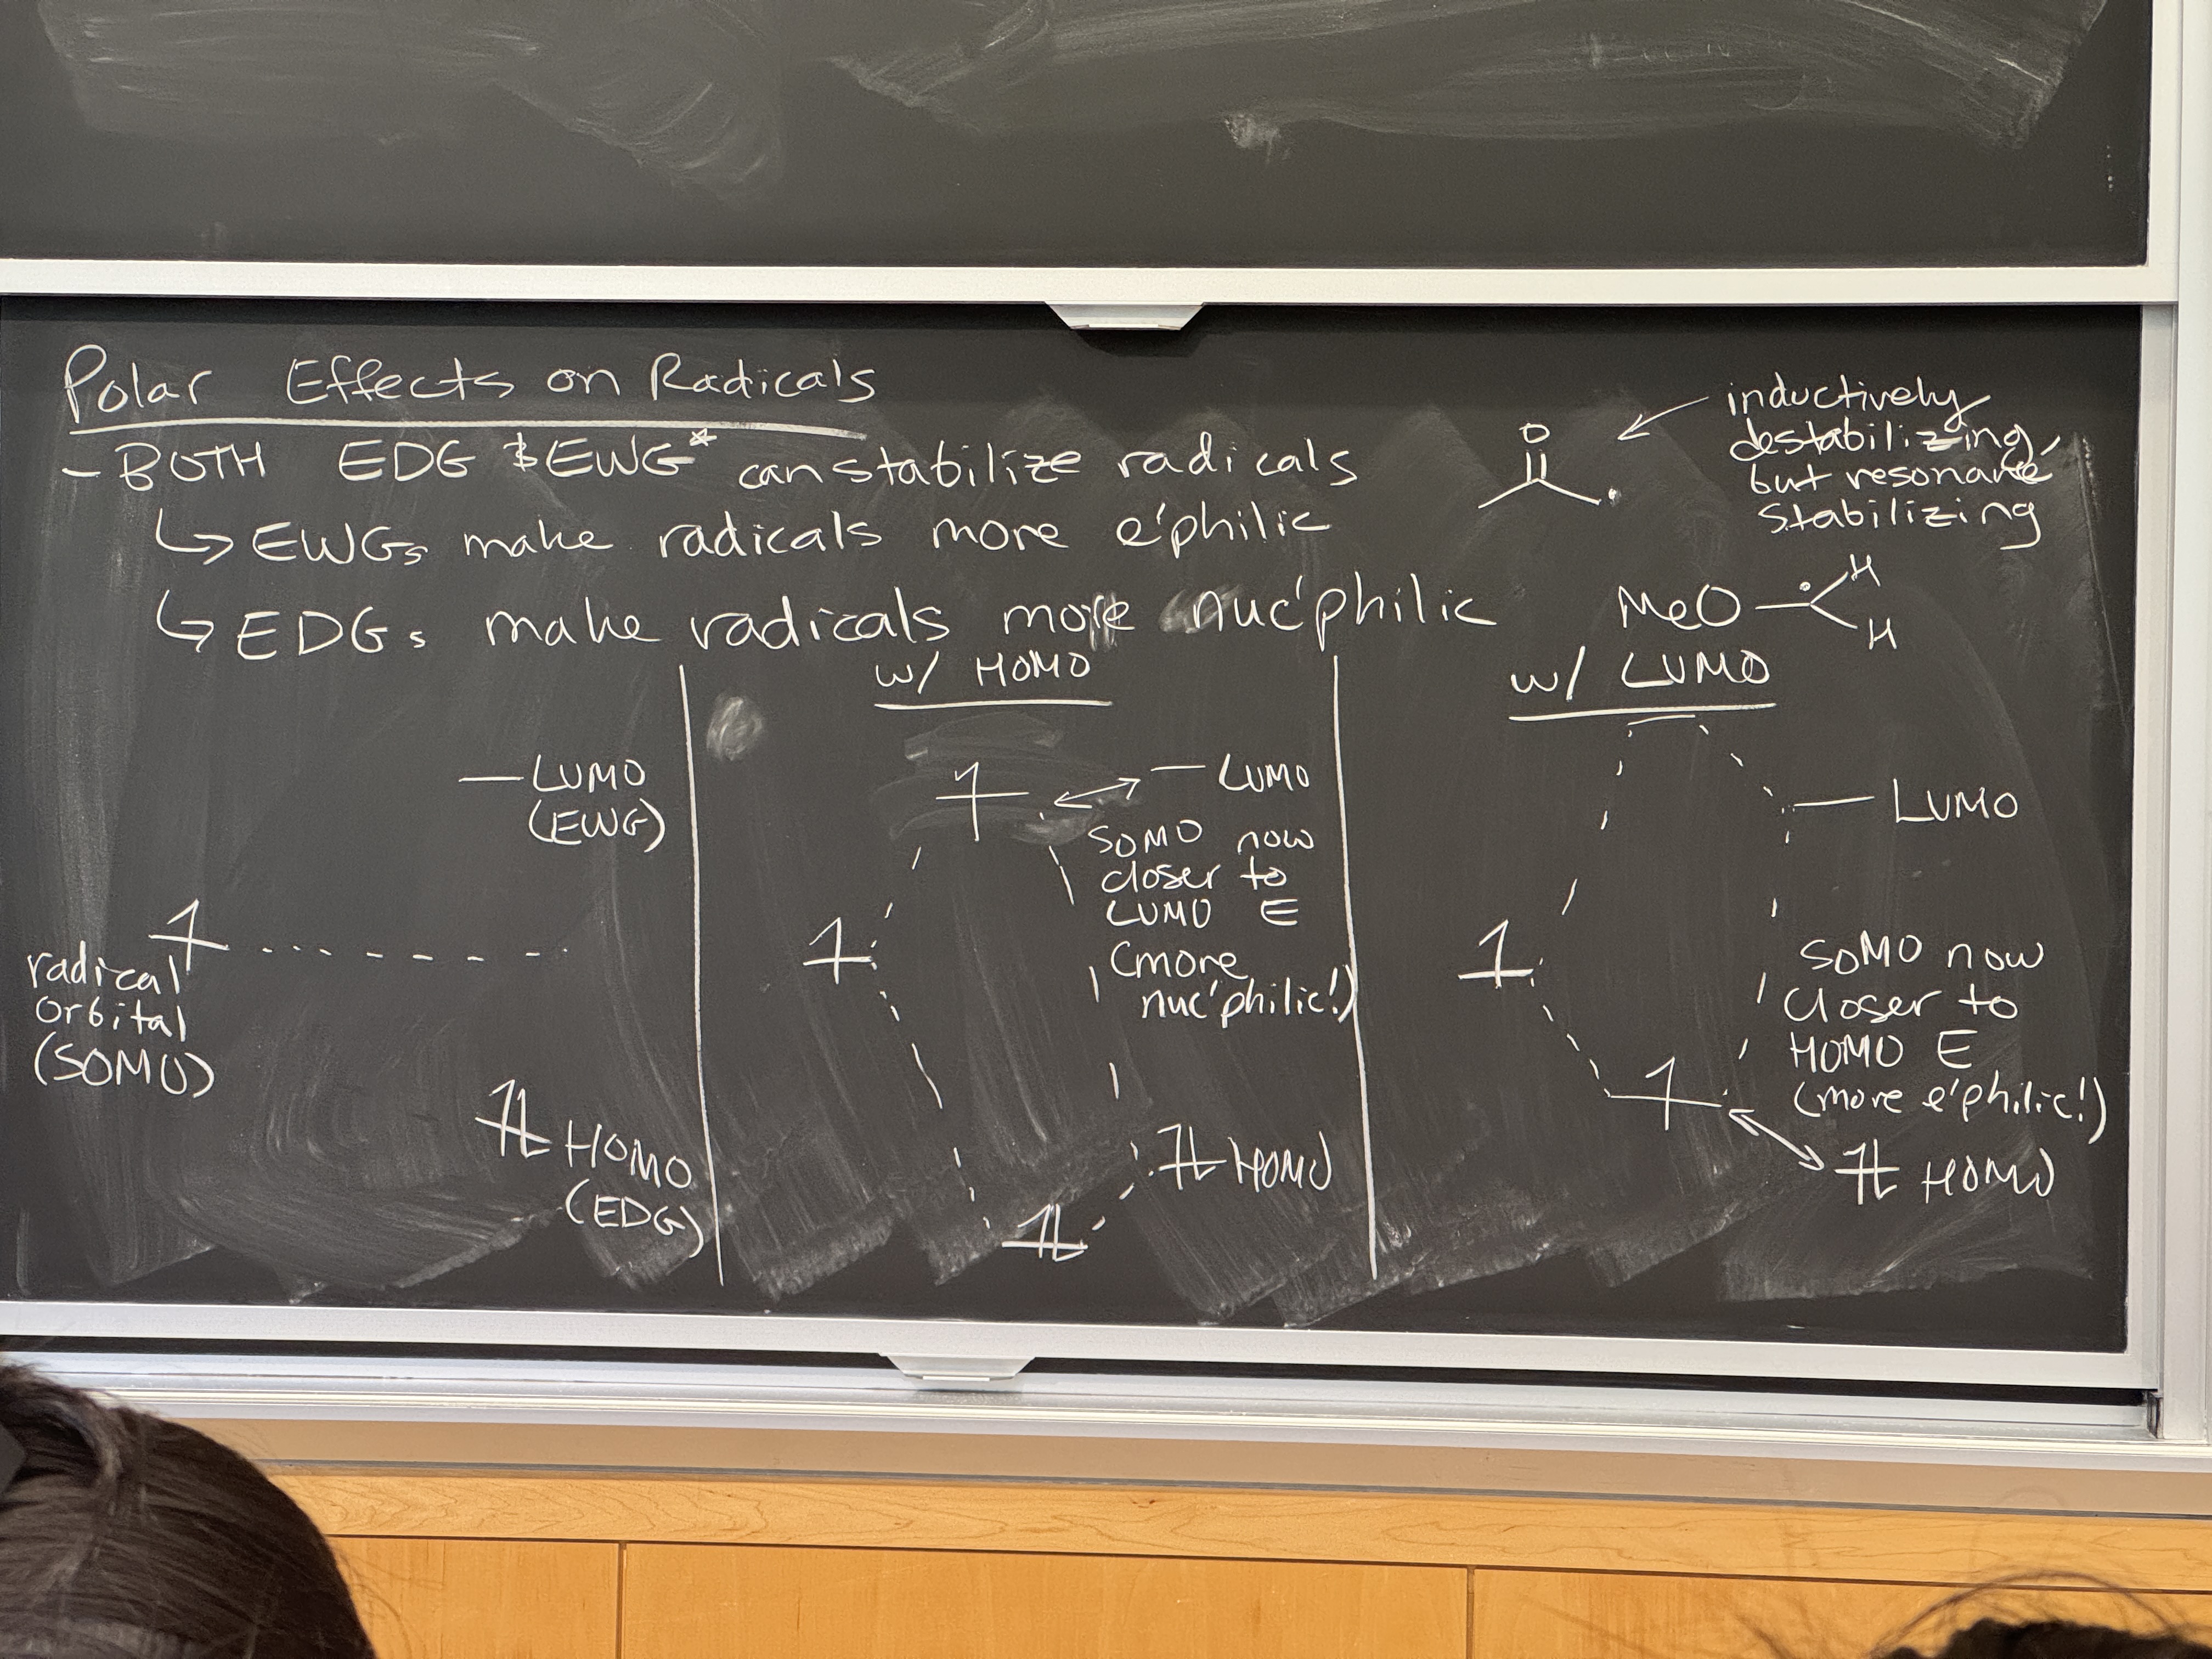 Polar Effects on Radicals
- BOTH EDG & EWG* can stabilize radicals
↳ EWGs make radicals more e'philic
↳ EDGs make radicals more nuc'philic
O
inductively
destabilizing,
but resonance
stabilizing
MeO
H
H
LUMO
(EWG)
radical
orbital
(SOMO)
HOMO
(EDG)
w/ HOMO
LUMO
SOMO now
closer to
LUMO E
(more
nuc'philic!)
HOMO
w/ LUMO
LUMO
SOMO now
closer to
HOMO E
(more e'philic!)
HOMO